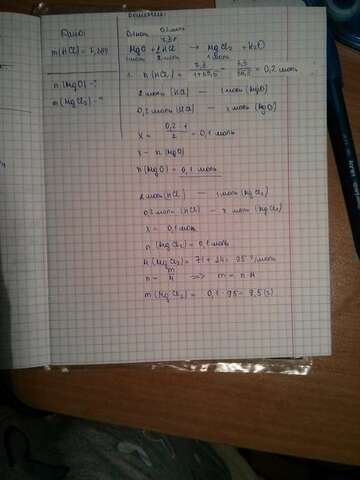 Дано:
m(HCl) = 7,3г
n(MgO) - ?
m(MgCl₂) - ?
Решение:
0,2 моль
7,3 г
MgO + 2HCl → MgCl₂ + H₂O
1 моль 2 моль 1 моль
1. n(HCl) = 7,3/1+35,5 = 7,3/36,5 = 0,2 моль
2 моль (HCl) — 1 моль (MgO)
0,2 моль (HCl) — x моль (MgO)
x = 0,2·1/2 = 0,1 моль
x - n(MgO)
n(MgO) = 0,1 моль
2 моль (HCl) — 1 моль (MgCl₂)
0,2 моль (HCl) — x моль (MgCl₂)
x = 0,1 моль
n(MgCl₂) = 0,1 моль
M(MgCl₂) = 71 + 24 = 95 г/моль
n = m/M => m = n·M
m(MgCl₂) = 0,1 · 95 = 9,5 (г)